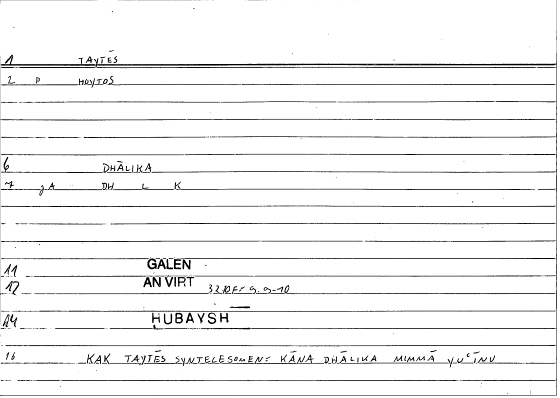 1 TAYTĒS
2 P HOYTOS
6 DHĀLIKA
7 gA DH L K
11 GALEN
12 AN VIRT
14 ḤUBAYSH
16 KAK TAYTĒS SYNTELESOMEN: KĀNA DHĀLIKA MIMMĀ YUʿĪNU